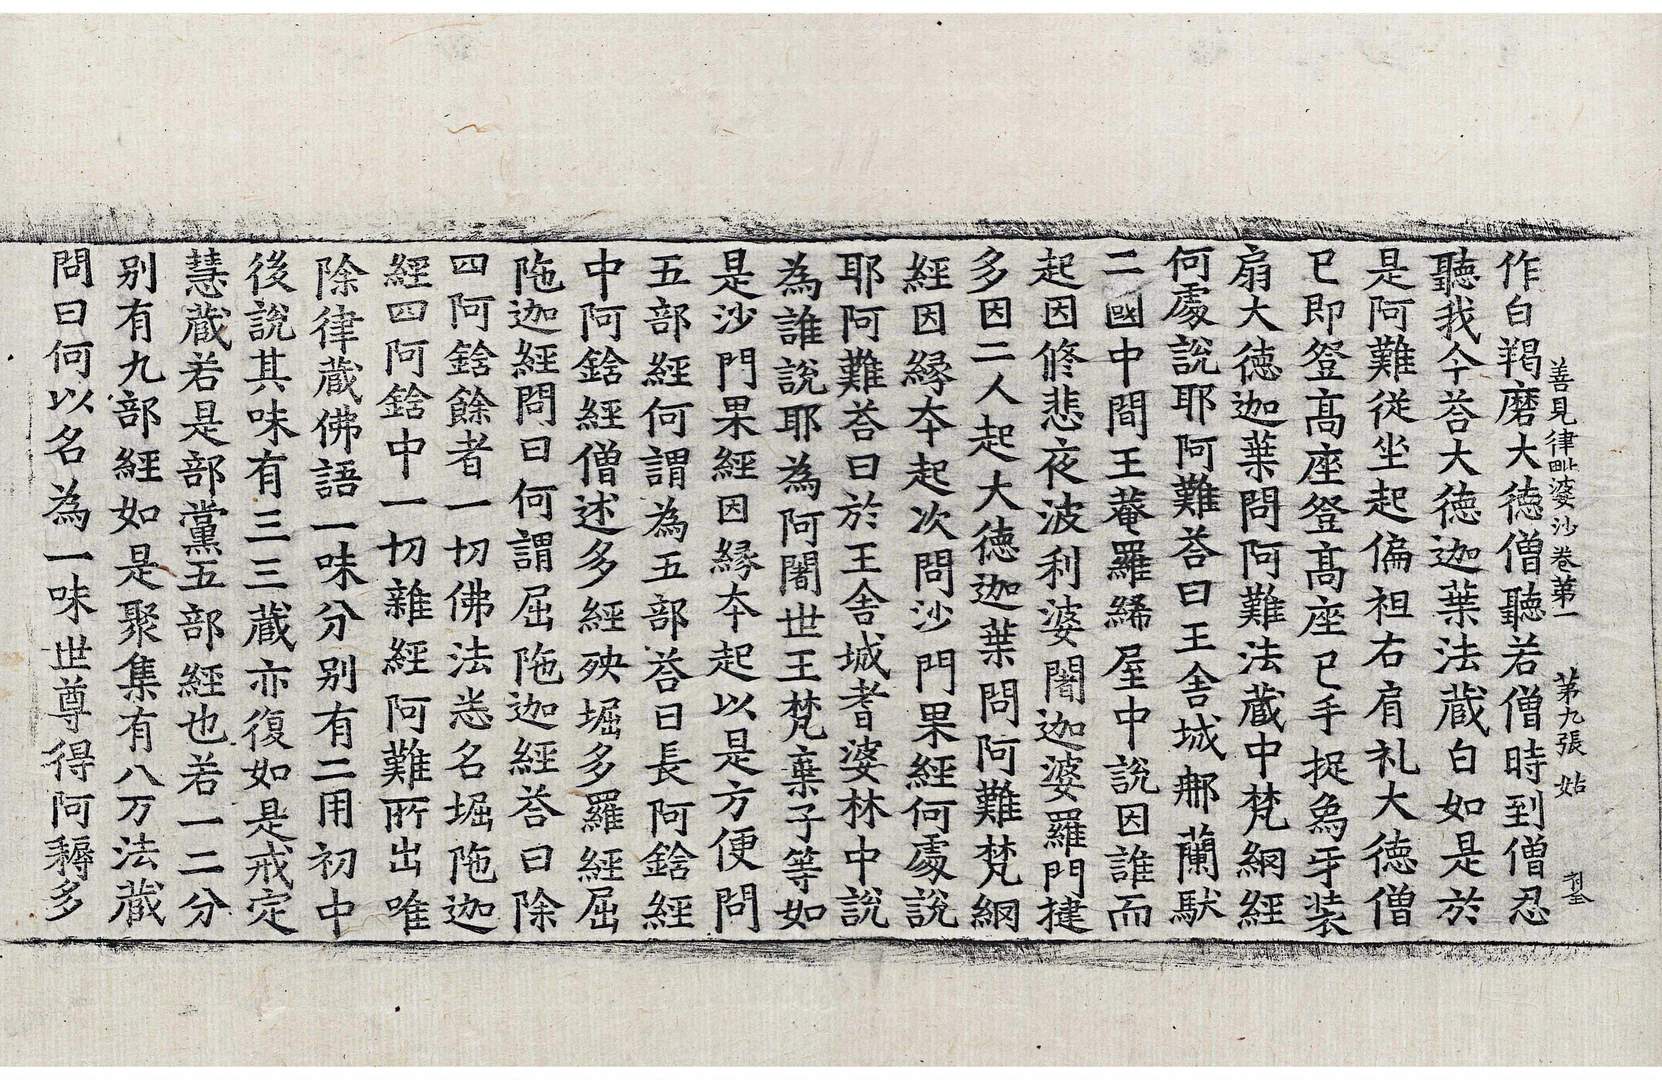 善見律毗婆沙卷苐一　苐九張　姑
作白羯磨大徳僧聽若僧時到僧忍
聽我今荅大徳迦葉法蔵白如是於
是阿難従坐起偏袒右肩礼大徳僧
已即登髙座登髙座已手捉象牙装
扇大徳迦葉問阿難法蔵中梵網經
何處說耶阿難荅曰王舎城𨙻蘭馱
二國中間王菴羅絺屋中說因誰而
起因修悲夜波利婆闍迦婆羅門揵
多因二人起大徳迦葉問阿難梵網
經因縁夲起次問沙門果經何處說
耶阿難荅曰於王舎城耆婆林中說
為誰說耶為阿闍世王梵棄子等如
是沙門果經因縁夲起以是方便問
五部經何謂為五部荅曰長阿鋡經
中阿鋡經僧述多經殃堀多羅經屈
陁迦經問曰何謂屈陁迦經荅曰除
四阿鋡餘者一切佛法悉名堀陁迦
經四阿鋡中一切雜經阿難所出唯
除律蔵佛語一味分别有二用初中
後說其味有三三蔵亦復如是戒定
慧蔵若是部黨五部經也若一二分
别有九部經如是聚集有八万法蔵
問曰何以名為一味世尊得阿耨多